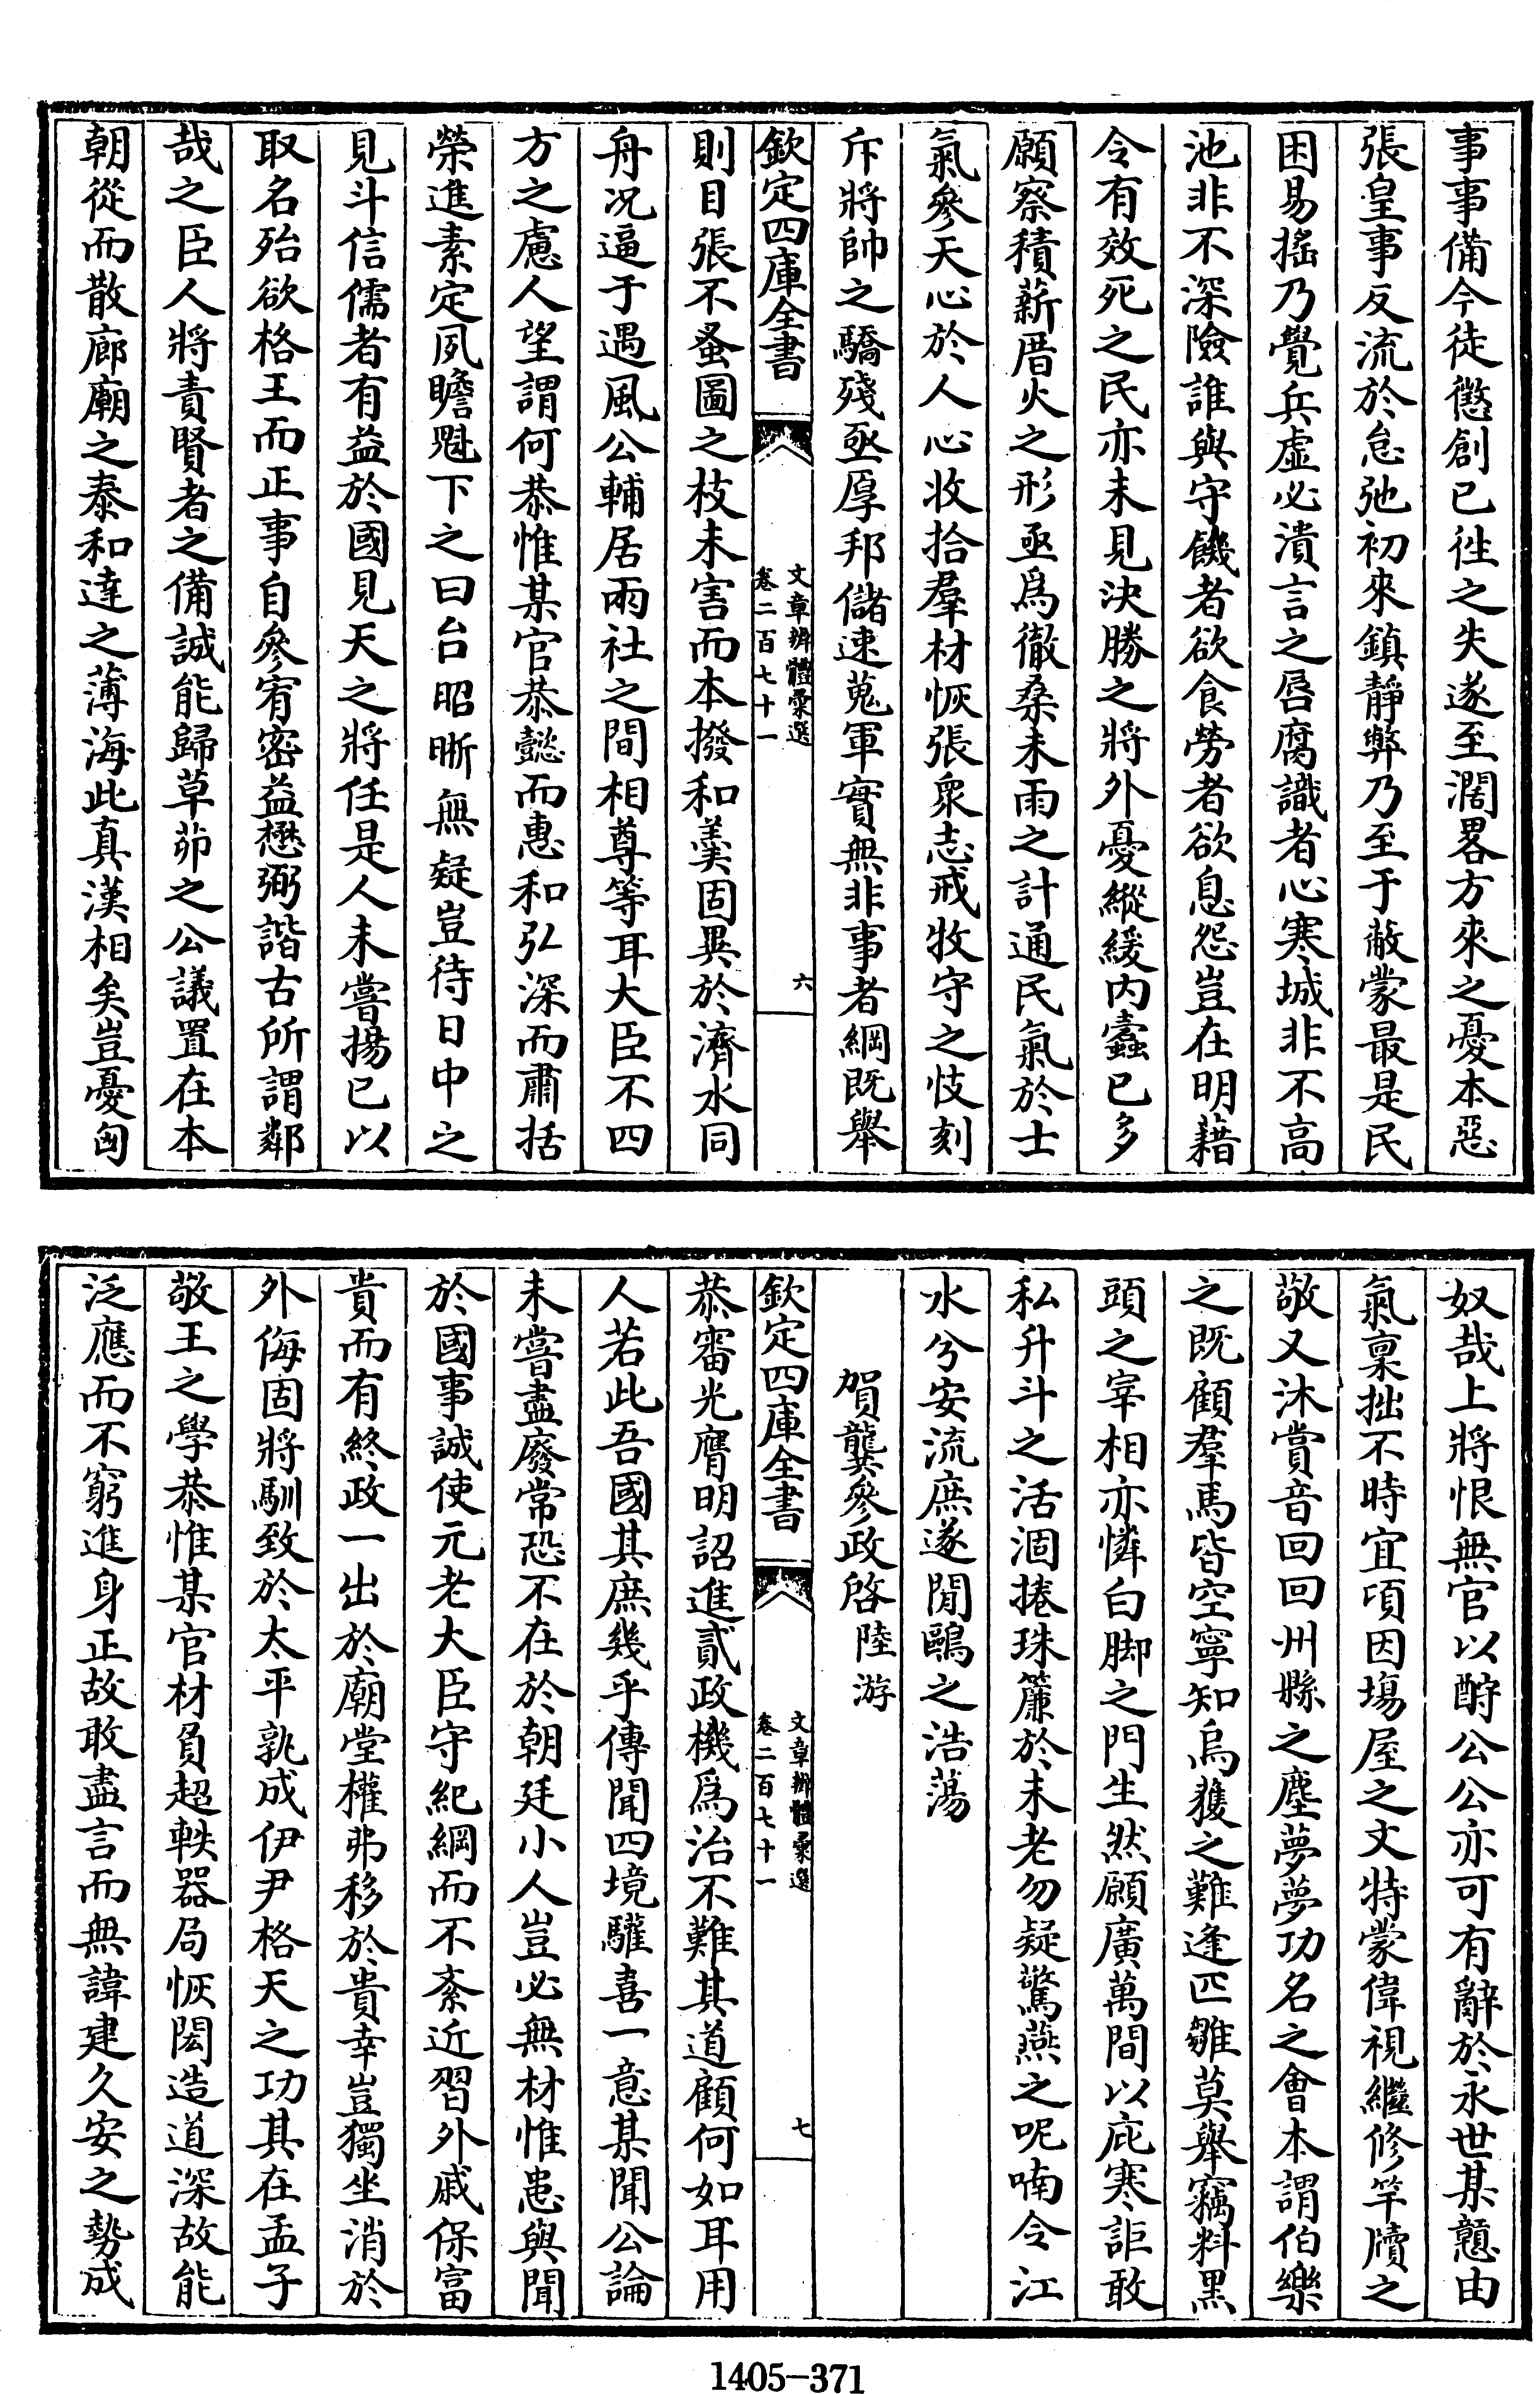 事事備今徒懲創已徃之失遂至濶畧方來之憂本惡
張皇事反流於怠弛初來鎮靜弊乃至于蔽蒙最是民
困易搖乃覺兵虛必潰言之唇腐識者心寒城非不高
池非不深險誰與守饑者欲食勞者欲息怨豈在明藉
令有效死之民亦未見決勝之將外憂縱緩内蠹已多
願察積薪厝火之形亟爲徹桑未雨之計通民氣於士
氣參天心於人心收拾羣材恢張衆志戒牧守之忮刻
斥將帥之驕殘亟厚邦儲速蒐軍實無非事者綱既舉
欽定四庫全書
文章辨體彙選
卷二百七十一
六
則目張不蚤圖之枝未害而本撥和羹固異於濟水同
舟况逼于遇風公輔居兩社之間相尊等耳大臣不四
方之慮人望謂何恭惟某官恭懿而惠和弘深而肅括
榮進素定夙瞻魁下之曰台昭晣無疑豈待日中之
見斗信儒者有益於國見天之將任是人未嘗揚已以
取名殆欲格王而正事自參宥密益懋弼諧古所謂鄰
哉之臣人將責賢者之備誠能歸草茆之公議置在本
朝從而散廊廟之泰和達之薄海此真漢相矣豈憂匈
奴哉上將恨無官以酹公公亦可有辭於永世某戇由
氣稟拙不時宜頃因塲屋之文特蒙偉視繼修竿牘之
敬又沐賞音回回州縣之塵夢夢功名之會本謂伯樂
之既顧羣馬皆空寧知烏獲之難逢匹雛莫舉竊料黑
頭之宰相亦憐白脚之門生然願廣萬間以庇寒詎敢
私升斗之活涸捲珠簾於未老勿疑驚燕之呢喃令江
水兮安流庶遂閒鷗之浩蕩
賀龔參政啓陸游
欽定四庫全書
文章辨體彙選
卷二百七十一
七
恭審光膺明詔進貳政機爲治不難其道顧何如耳用
人若此吾國其庶幾乎傳聞四境驩喜一意某聞公論
未嘗盡廢常恐不在於朝廷小人豈必無材惟患與聞
於國事誠使元老大臣守紀綱而不紊近習外戚保富
貴而有終政一出於廟堂權弗移於貴幸豈獨坐消於
外侮固將馴致於太平孰成伊尹格天之功其在孟子
敬王之學恭惟某官材負超軼器局恢閎造道深故能
泛應而不窮進身正故敢盡言而無諱建久安之勢成
1405-371